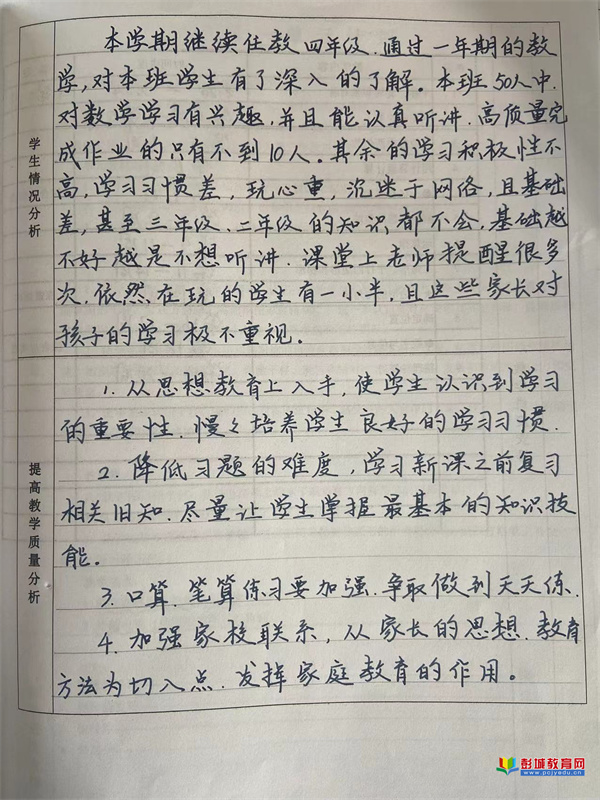 学生情况分析
本学期继续任教四年级.通过一年期的教
学,对本班学生有了深入的了解。本班50人中.
对数学学习有兴趣,并且能认真听讲.高质量完
成作业的只有不到10人。其余的学习积极性不
高,学习习惯差,玩心重,沉迷于网络,且基础
差,甚至三年级.二年级的知识都不会,基础越
不好越是不想听讲.课堂上老师提醒很多
次,依然在玩的学生有一小半,且这些家长对
孩子的学习极不重视。
提高教学质量分析
1.从思想教育上入手,使学生认识到学习
的重要性.慢々培养学生良好的学习习惯.
2.降低习题的难度,学习新课之前复习
相关旧知.尽量让学生掌握最基本的知识技
能。
3.口算.笔算练习要加强.争取做到天天练.
4.加强家校联系,从家长的思想.教育
方法为切入点.发挥家庭教育的作用。
彭城教育网
www.pcjyedu.cn